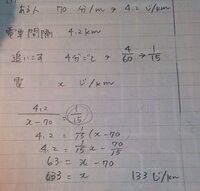 ある人 70 分/m → 4.2 じ/km
電車間隔 4.2km
追いこす 4分ごと → 4/60 → 1/15
電 x じ/km
4.2/x-70 = 1/15
4.2 = 1/15(x-70)
4.2 = 1/15x - 70/15
63 = x - 70
= x 133 じ/km